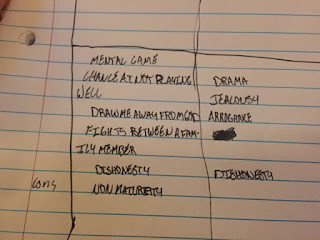 MENTAL GAME
CHANCE AT NOT PLAYING
WELL
DRAW ME AWAY FROM GOD
FIGHTS BETWEEN A FAM-
ILY MEMBER
DISHONESTY
NON MATURITY
DRAMA
JEALOUSY
ARROGANCE
DISHONESTY
cons